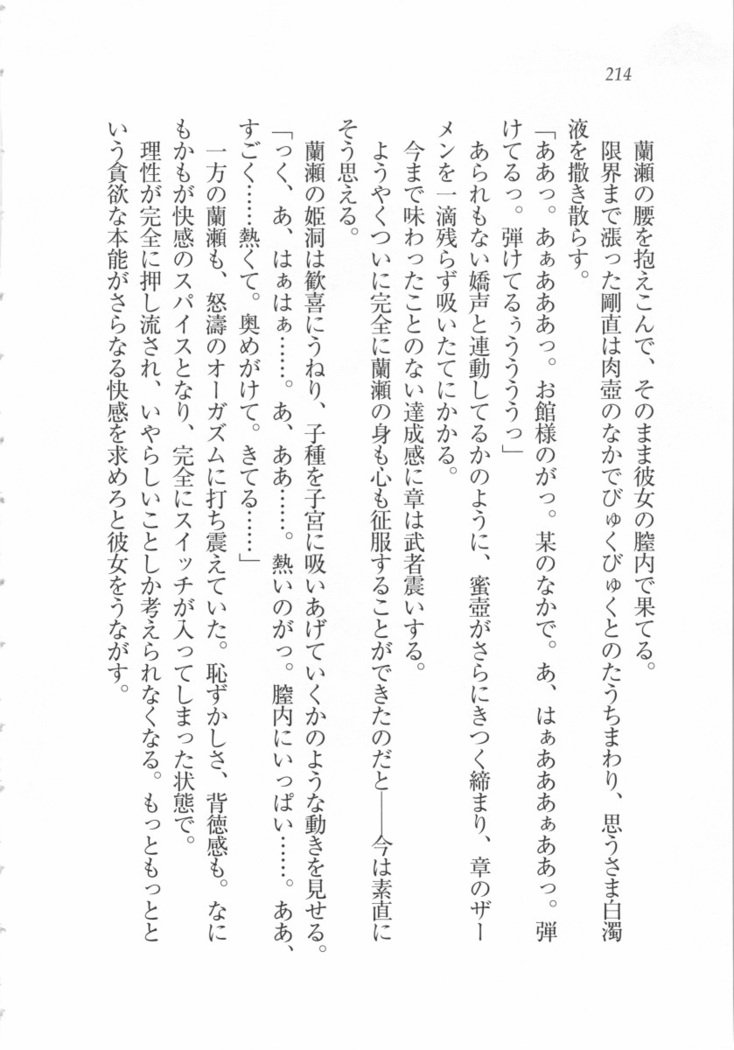 214
蘭瀬の腰を抱えこんで、そのまま彼女の膣内で果てる。
限界まで漲った剛直は肉壺のなかでびゅくびゅくとのたうちまわり、思うさま白濁
液を撒き散らす。
「ああっ。あぁあああっ。お館様のがっ。某のなかで。あ、はぁあああぁああっ。弾
けてるっ。弾けてるぅううううっ」
あられもない嬌声と連動してるかのように、蜜壺がさらにきつく締まり、章のザー
メンを一滴残らず吸いたてにかかる。
今まで味わったことのない達成感に章は武者震いする。
ようやくついに完全に蘭瀬の身も心も征服することができたのだと――今は素直に
そう思える。
蘭瀬の姫洞は歓喜にうねり、子種を子宮に吸いあげていくかのような動きを見せる。
「っく、あ、はぁはぁ……。あ、ああ……。熱いのがっ。膣内にいっぱい……。ああ、
すごく……熱くて。奥めがけて。きてる……」
一方の蘭瀬も、怒濤のオーガズムに打ち震えていた。恥ずかしさ、背徳感も。なに
もかもが快感のスパイスとなり、完全にスイッチが入ってしまった状態で。
理性が完全に押し流され、いやらしいことしか考えられなくなる。もっともっとと
いう貪欲な本能がさらなる快感を求めろと彼女をうながす。